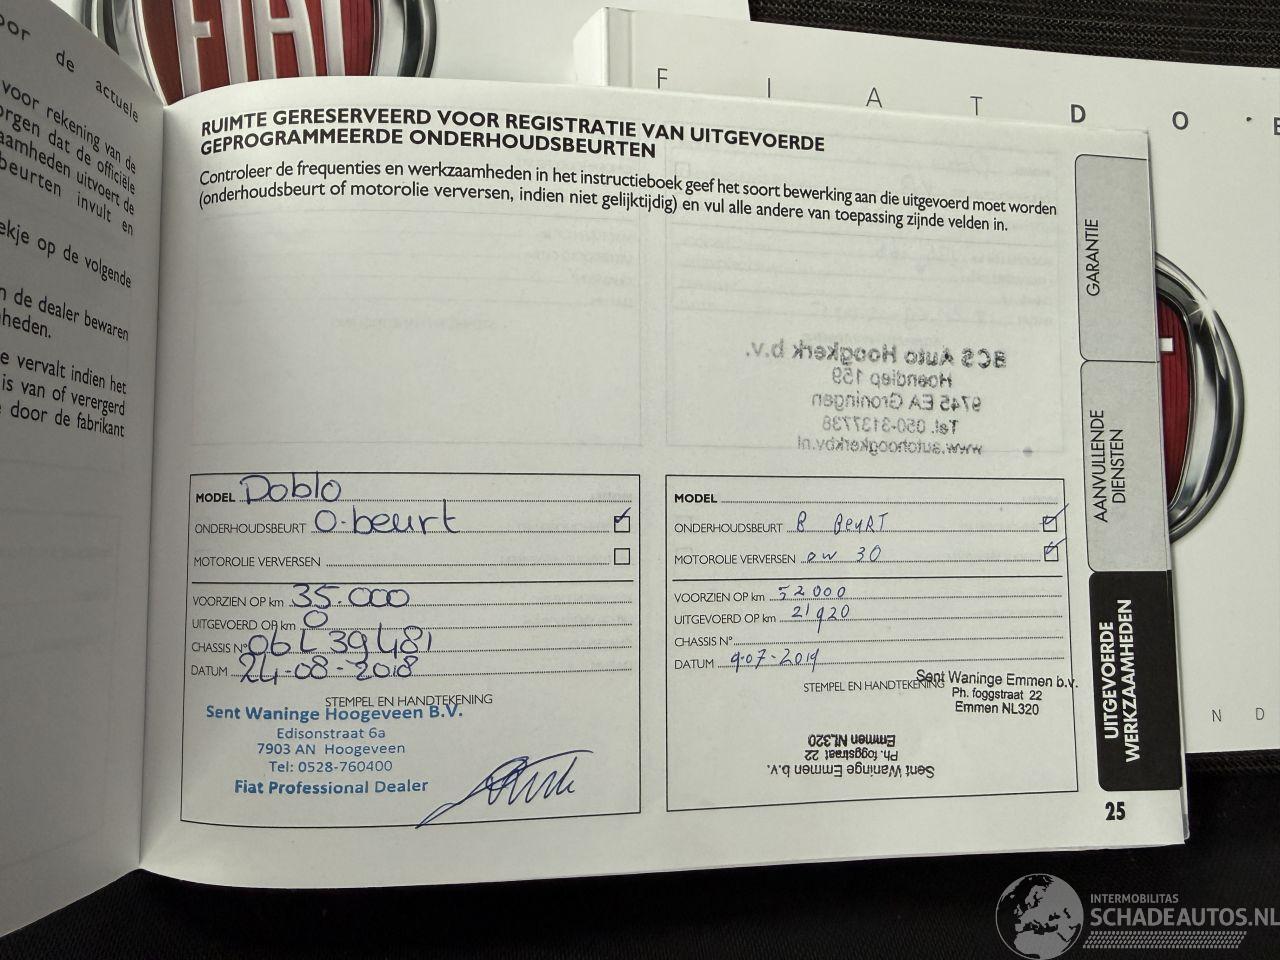 FIAT
F I A T D O B
oor de actuele
voor rekening van de
orgen dat de officiële
aamheden uitvoert de
beurten invult en
ekje op de volgende
n de dealer bewaren
heden.
e vervalt indien het
is van of verergerd
door de fabrikant
RUIMTE GERESERVEERD VOOR REGISTRATIE VAN UITGEVOERDE
GEPROGRAMMEERDE ONDERHOUDSBEURTEN
Controleer de frequenties en werkzaamheden in het instructieboek geef het soort bewerking aan die uitgevoerd moet worden
(onderhoudsbeurt of motorolie verversen, indien niet gelijktijdig) en vul alle andere van toepassing zijnde velden in.
BCS Auto Hoogkerk b.v.
Hoendiep 159
9745 EA Groningen
Tel. 050-3137738
www.autohoogkerkbv.nl
MODEL Doblo
ONDERHOUDSBEURT O-beurt
MOTOROLIE VERVERSEN
VOORZIEN OP km 35.000
UITGEVOERD OP km 0
CHASSIS N° 06L39481
DATUM 24-08-2018
STEMPEL EN HANDTEKENING
Sent Waninge Hoogeveen B.V.
Edisonstraat 6a
7903 AN Hoogeveen
Tel: 0528-760400
Fiat Professional Dealer
MODEL
ONDERHOUDSBEURT B BEURT
MOTOROLIE VERVERSEN OW 30
VOORZIEN OP km 52000
UITGEVOERD OP km 21920
CHASSIS N°
DATUM 9-07-2019
STEMPEL EN HANDTEKENING
Sent Waninge Emmen b.v.
Ph. foggstraat 22
Emmen NL320
Sent Waninge Emmen b.v.
Ph. foggstraat 22
Emmen NL320
GARANTIE
AANVULLENDE
DIENSTEN
UITGEVOERDE
WERKZAAMHEDEN
25
N D
INTERMOBILITAS
SCHADEAUTOS.NL